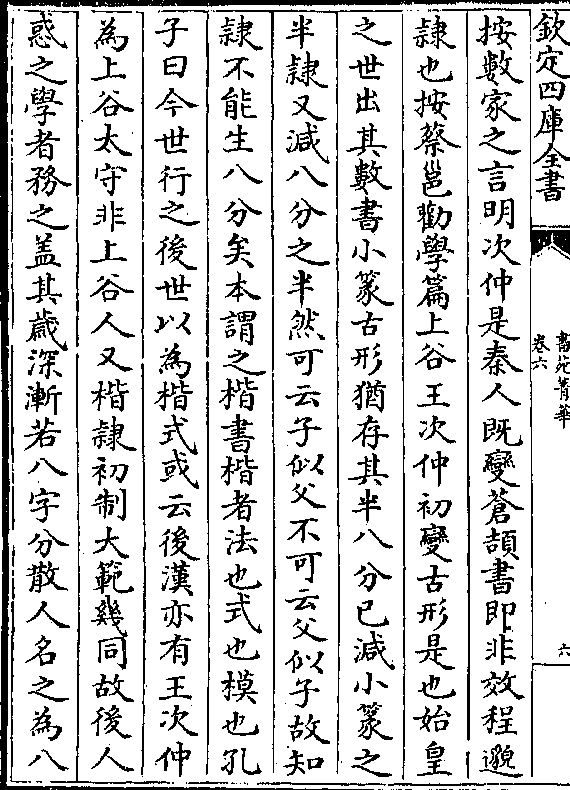 欽定四庫全書
書苑菁華
卷六
六
按數家之言明次仲是秦人既變蒼頡書即非效程邈
隸也按蔡邕勸學篇上谷王次仲初變古形是也始皇
之世出其數書小篆古形猶存其半八分已減小篆之
半隸又減八分之半然可云子似父不可云父似子故知
隸不能生八分矣本謂之楷書楷者法也式也模也孔
子曰今世行之後世以為楷式或云後漢亦有王次仲
為上谷太守非上谷人又楷隸初制大範幾同故後人
惑之學者務之盖其歲深漸若八字分散人名之為八